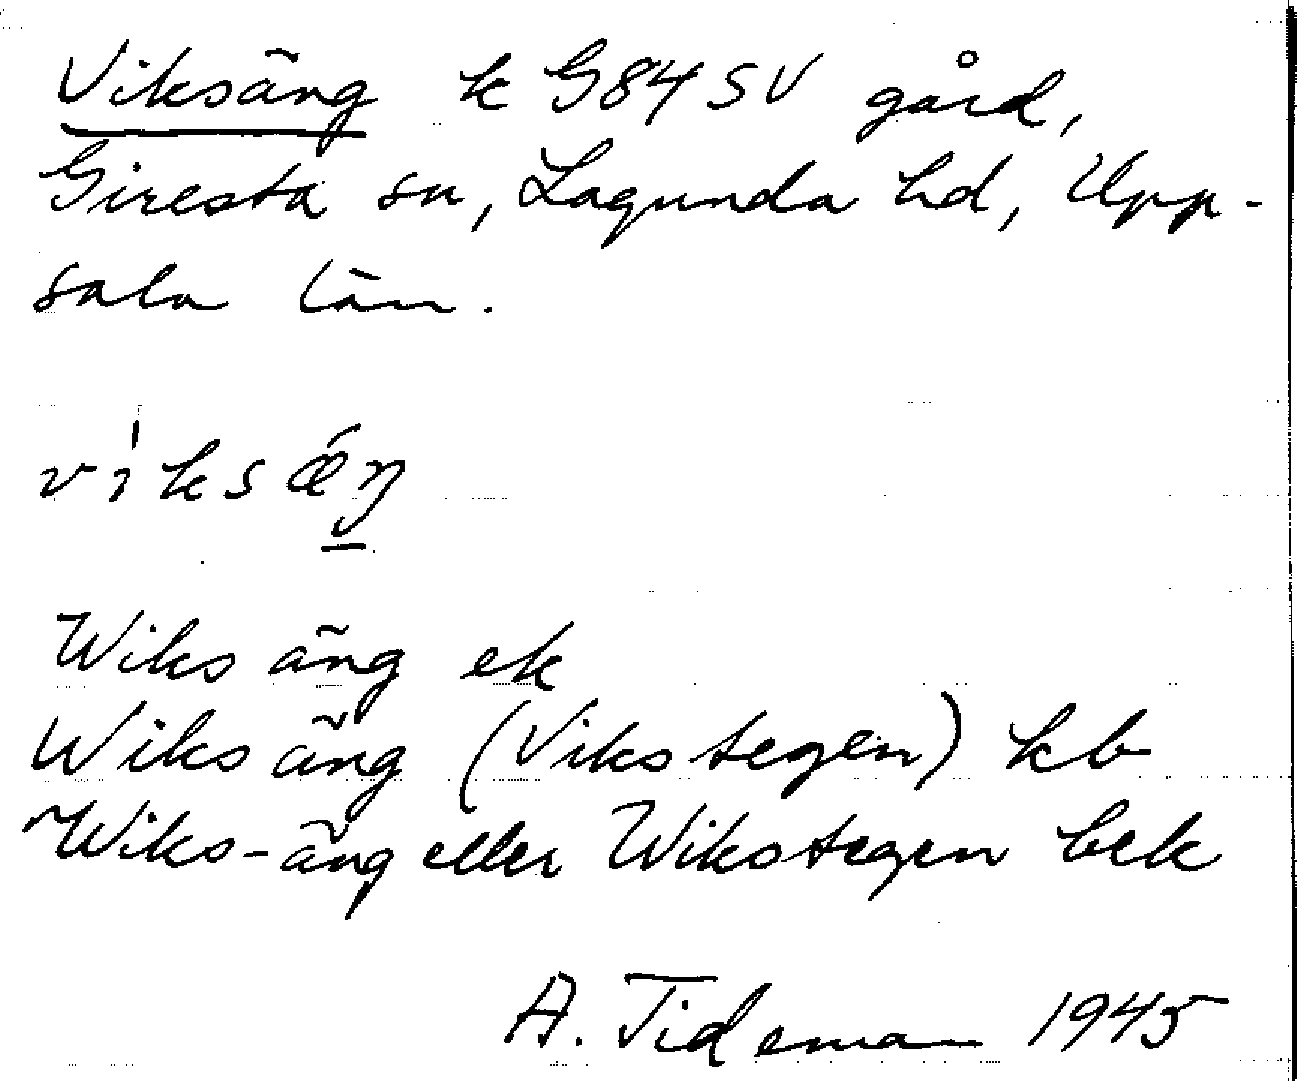 Viksäng k G84SV gård,
Giresta sn, Lagunda hd, Upp-
sala län.
viksǽŋ
Wiksäng ek
Wiksäng (Vikstegen) kb
Wiks-äng eller Wikstegen bek
A. Tideman 1945